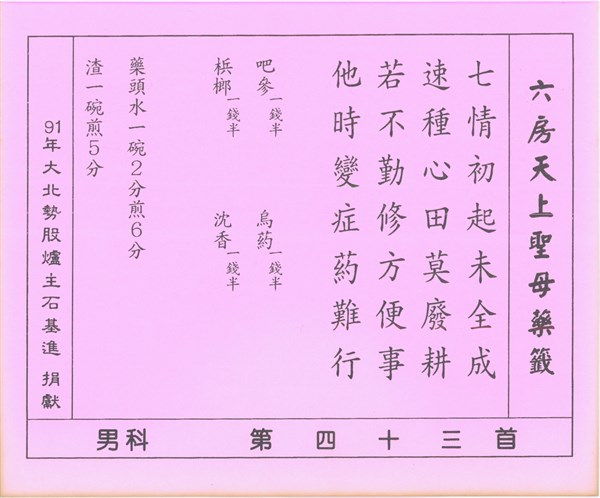 六房天上聖母藥籤
七情初起未全成
速種心田莫廢耕
若不勤修方便事
他時變症葯難行
吧參一錢半 烏葯一錢半
梹榔一錢半 沈香一錢半
藥頭水一碗2分煎6分
渣一碗煎5分
91年大北勢股爐主石基進 捐獻
男科 第四十三首